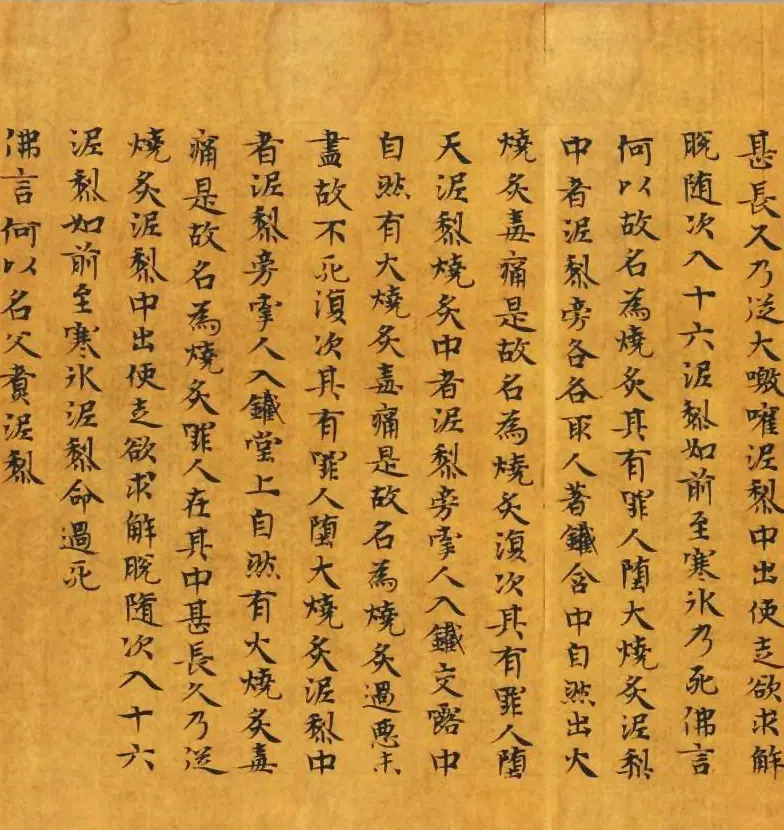 甚長久乃從大噭嚾泥犁中出便走欲求解
脫随次入十六泥犁如前至寒氷乃死佛言
何以故名為燒炙其有罪人堕大燒炙泥犁
中者泥犁旁各各取人著鐵舍中自然出火
燒炙毒痛是故名為燒炙復次其有罪人堕
天泥犁燒炙中者泥犁旁掌人入鐵交露中
自然有火燒炙毒痛是故名為燒炙過悪未
盡故不死復次其有罪人堕大燒炙泥犁中
者泥犁旁掌人入鐵堂上自然有火燒炙毒
痛是故名為燒炙罪人在其中甚長久乃從
燒炙泥犁中出便走欲求解脫随次入十六
泥犁如前至寒氷泥犁命過死
佛言何以名父賁泥犁